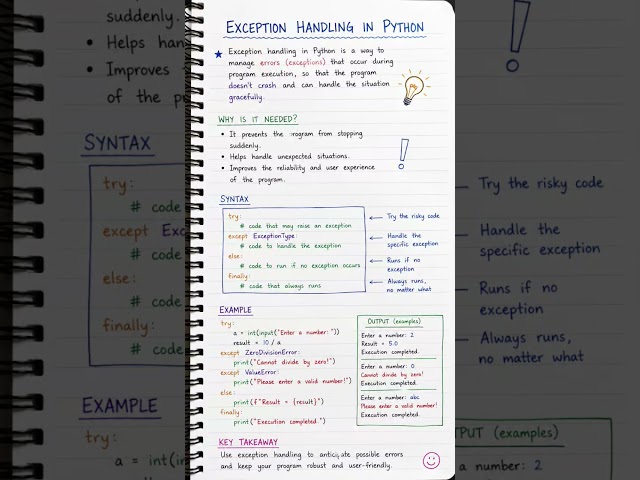 EXCEPTION HANDLING IN PYTHON
★ Exception handling in Python is a way to
manage errors (exceptions) that occur during
program execution, so that the program
doesn't crash and can handle the situation
gracefully.
WHY IS IT NEEDED?
• It prevents the program from stopping
suddenly.
• Helps handle unexpected situations.
• Improves the reliability and user experience
of the program.
SYNTAX
try:
# code that may raise an exception
except ExceptionType:
# code to handle the exception
else:
# code to run if no exception occurs
finally:
# code that always runs
← Try the risky code
← Handle the
specific exception
← Runs if no
exception
← Always runs,
no matter what
EXAMPLE
try:
a = int(input("Enter a number: "))
result = 10 / a
except ZeroDivisionError:
print("Cannot divide by zero!")
except ValueError:
print("Please enter a valid number!")
else:
print(f"Result = {result}")
finally:
print("Execution completed.")
OUTPUT (examples)
Enter a number: 2
Result = 5.0
Execution completed.
Enter a number: 0
Cannot divide by zero!
Execution completed.
Enter a number: abc
Please enter a valid number!
Execution completed.
KEY TAKEAWAY
Use exception handling to anticipate possible errors
and keep your program robust and user-friendly.
suddenly.
• Helps han
• Improves
of the p
SYNTAX
try:
# code
except Exc
# code
else:
# code
finally:
# code
EXAMPLE
try:
a = int(in
Try the risky code
Handle the
specific exception
Runs if no
exception
Always runs,
no matter what
TPUT (examples)
a number: 2